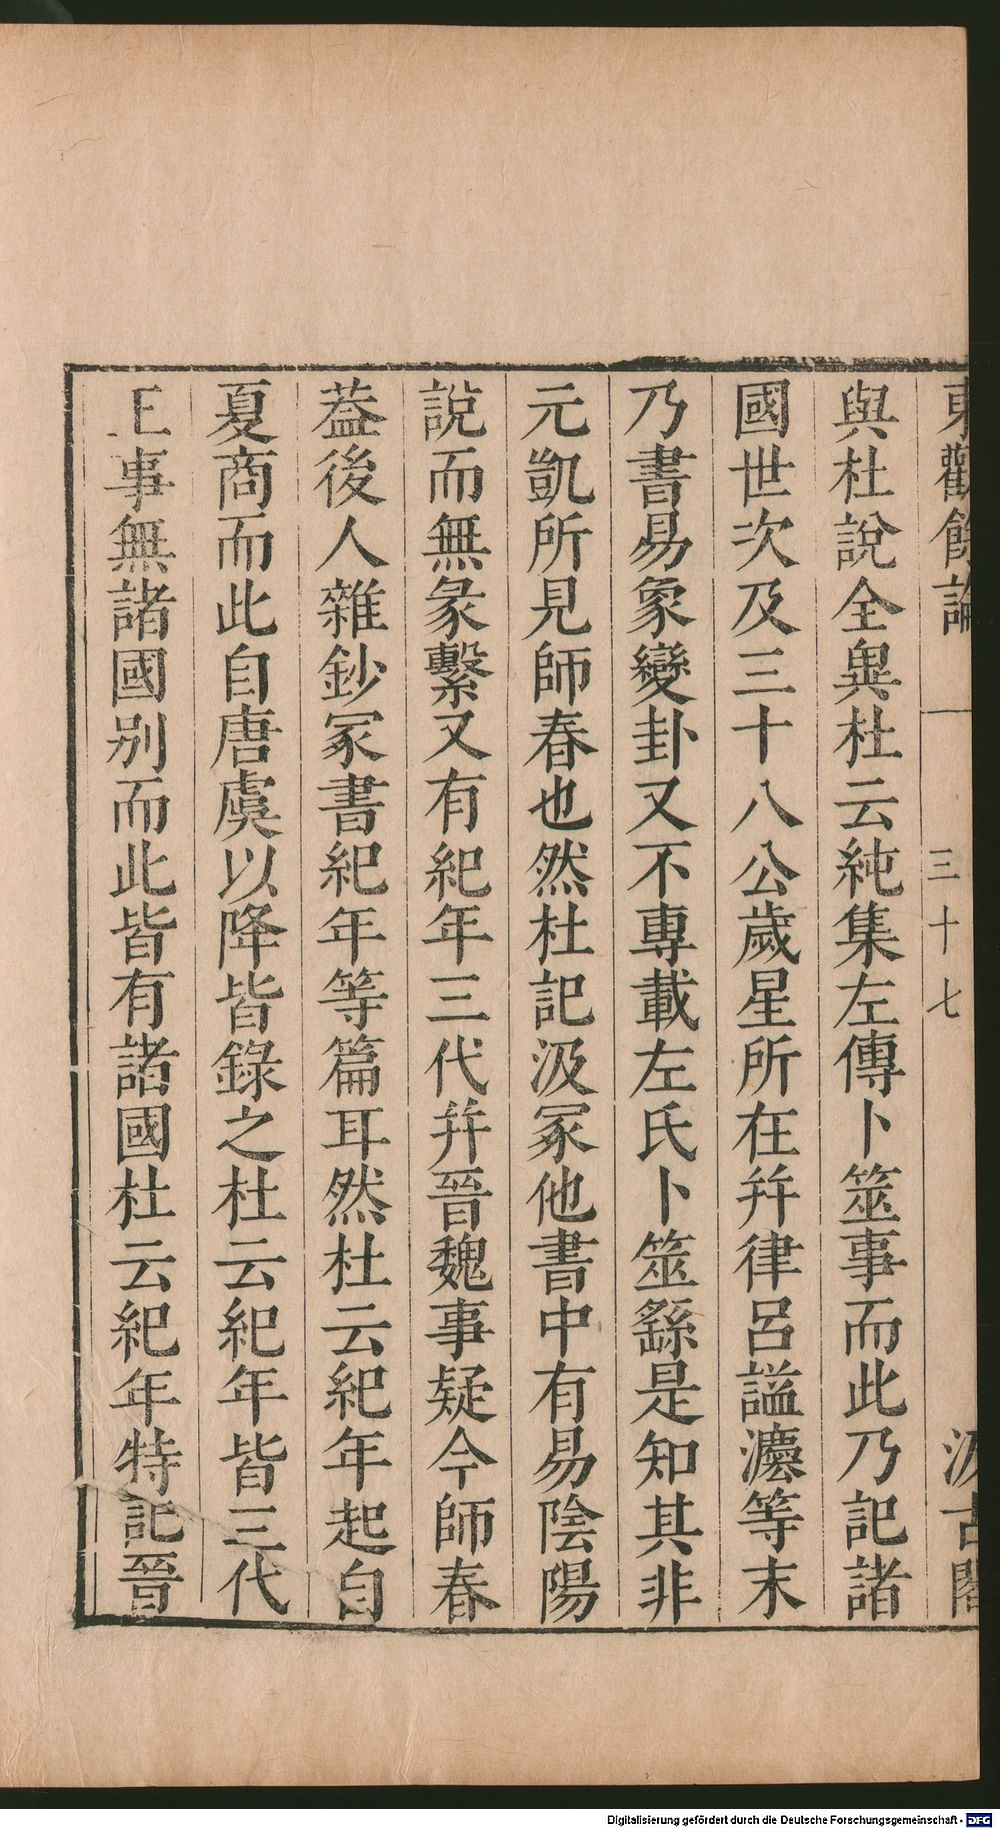 東觀餘論 三十七 汲古閣
與杜說全異杜云純集左傳卜筮事而此乃記諸
國世次及三十八公歲星所在幷律呂謚灋等末
乃書易象變卦又不專載左氏卜筮繇是知其非
元凱所見師春也然杜記汲冢他書中有易陰陽
說而無彖繫又有紀年三代幷晉魏事疑今師春
葢後人雜鈔冢書紀年等篇耳然杜云紀年起自
夏商而此自唐虞以降皆錄之杜云紀年皆三代
王事無諸國别而此皆有諸國杜云紀年特記晉
Digitalisierung gefördert durch die Deutsche Forschungsgemeinschaft - DFG